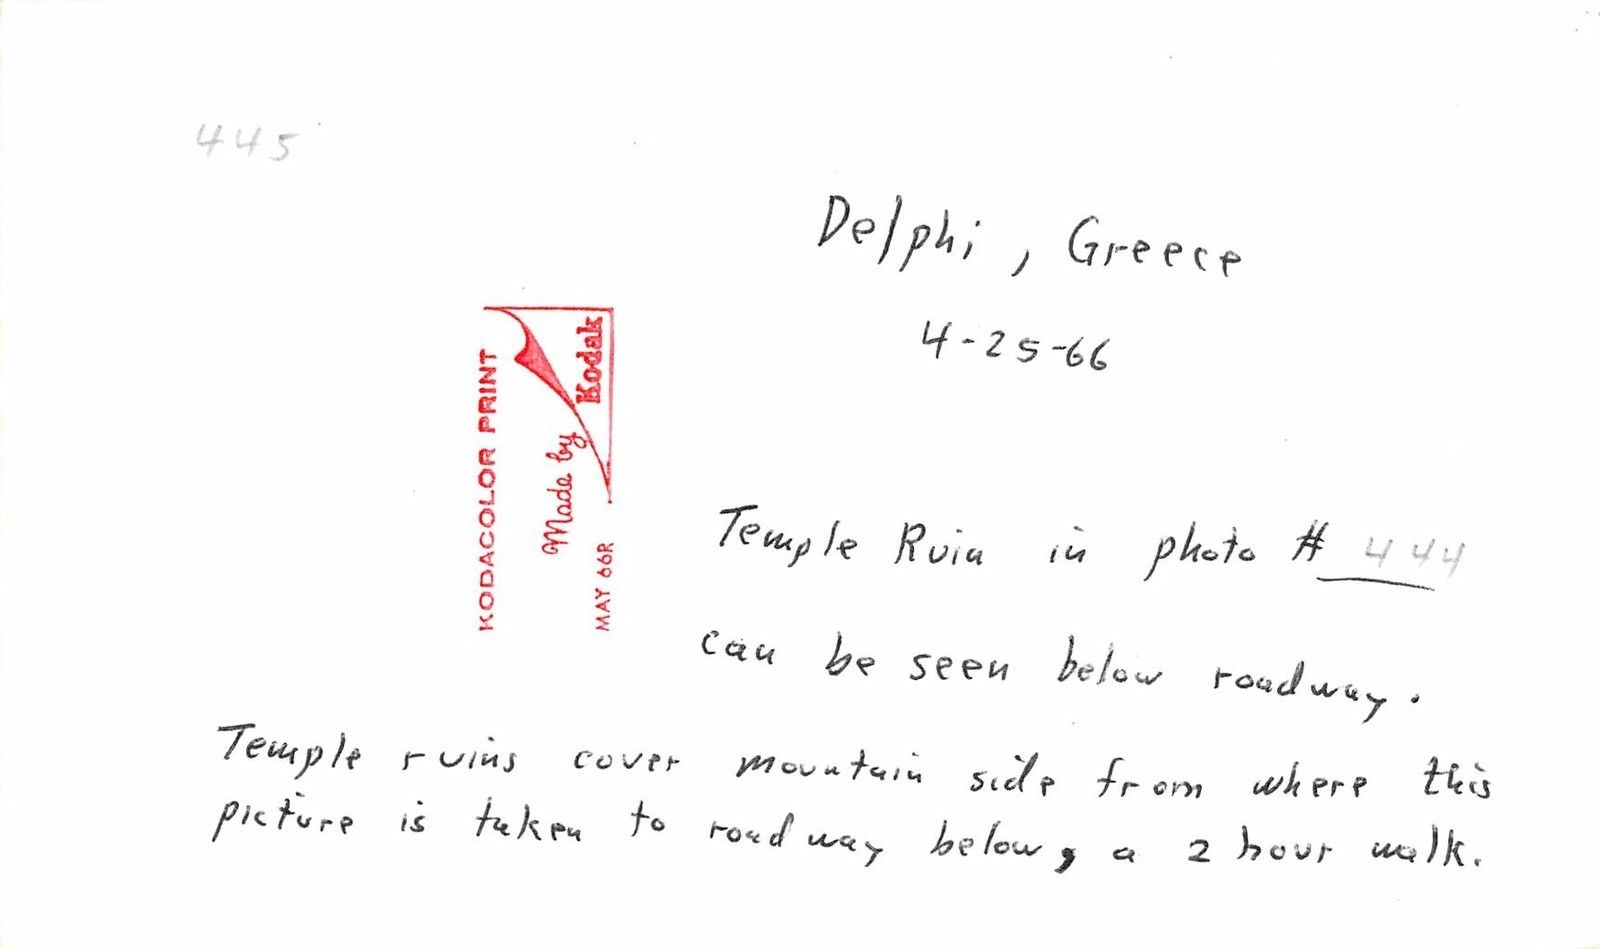 445
Delphi, Greece
4-25-66
KODACOLOR PRINT
Made by
Kodak
MAY 66R
Temple Ruin in photo # 444
can be seen below roadway.
Temple ruins cover mountain side from where this
picture is taken to roadway below, a 2 hour walk.